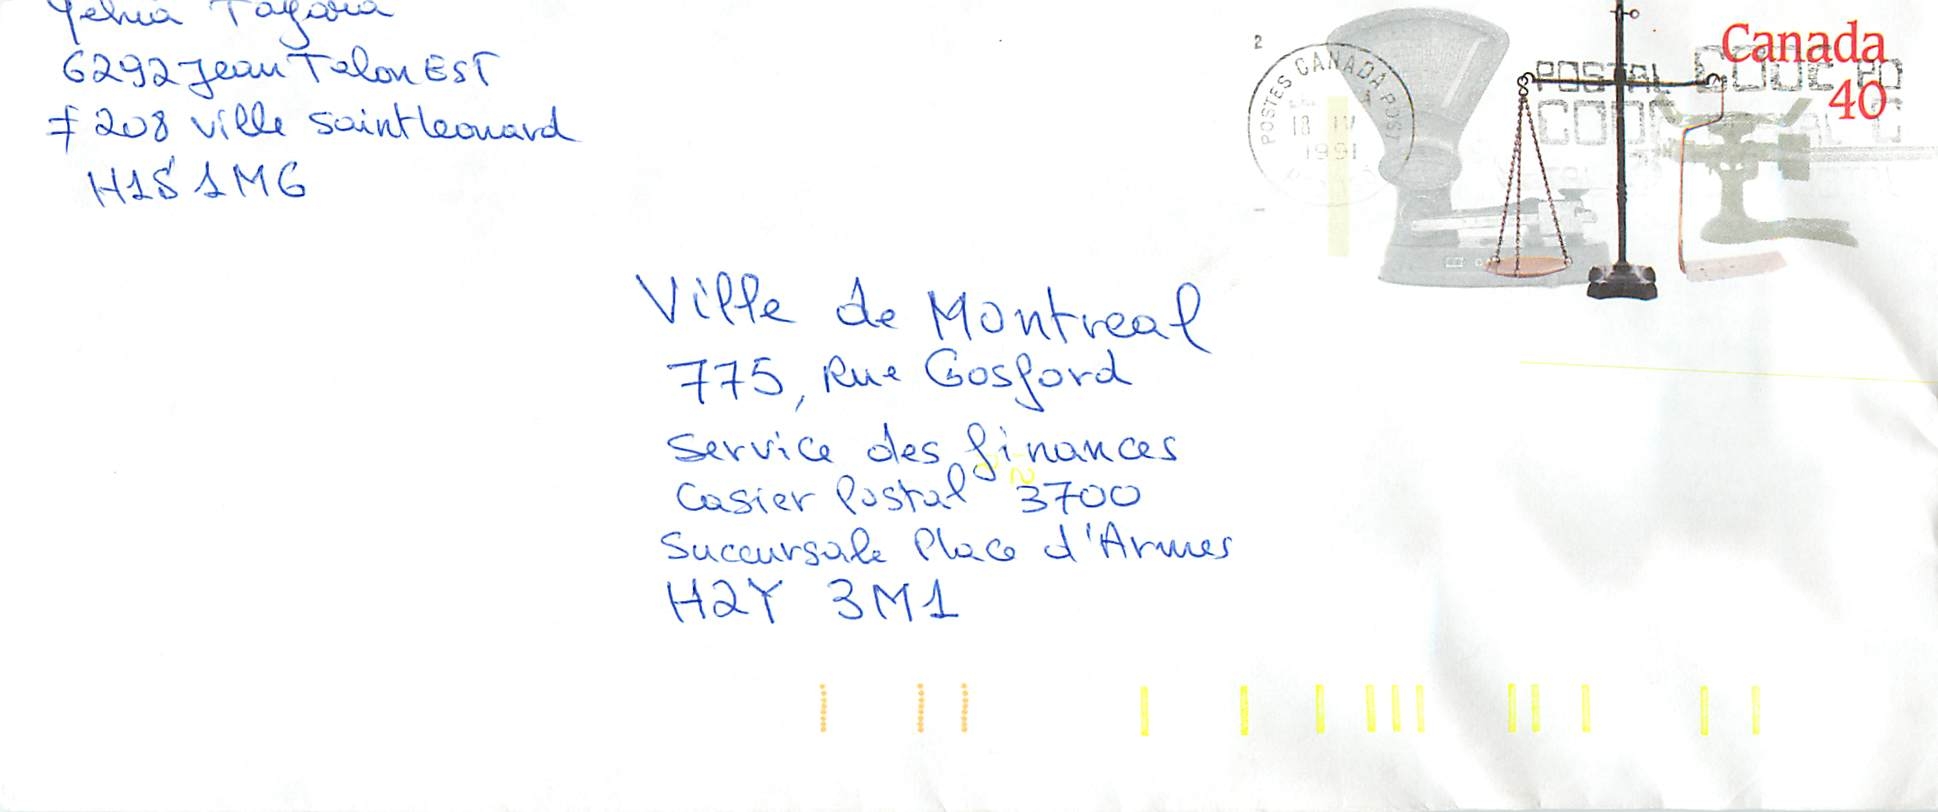 Yehia Tagora
6292 Jean Talon EST
# 208 Ville Saint Leonard
H1S 1M6
Canada
40
2
POSTES CANADA POST
18 IV
1991
POSTAL CODE PO
COD
Ville de Montreal
775, Rue Gosford
Service des finances
Casier Postal 3700
Succursale Place d'Armes
H2Y 3M1